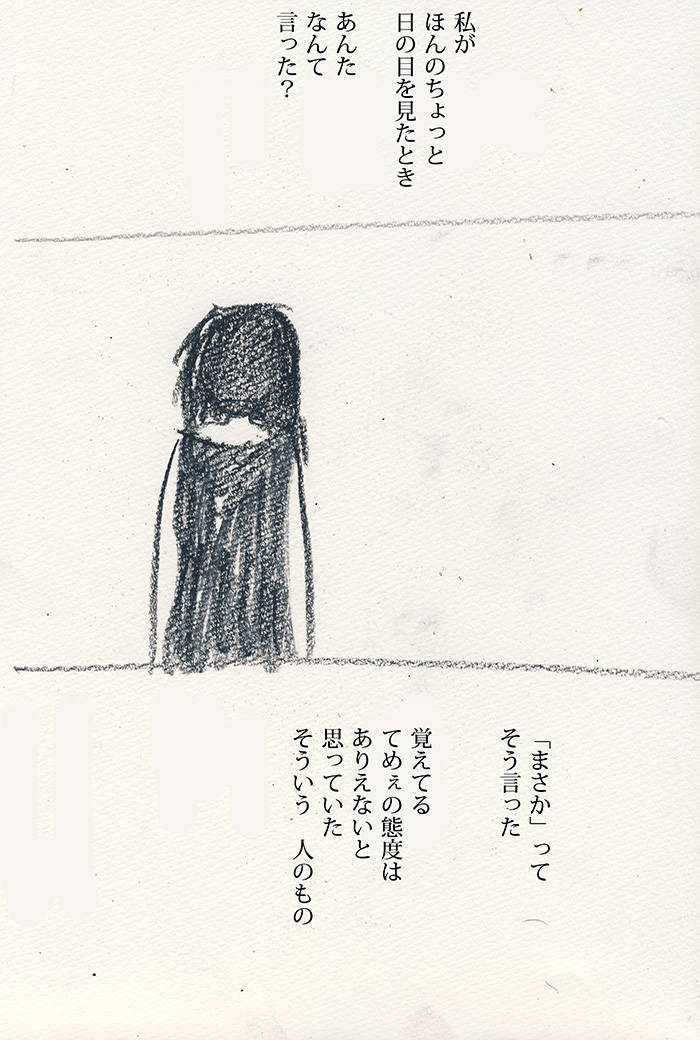 私が
ほんのちょっと
日の目を見たとき
あんた
なんて
言った？
「まさか」って
そう言った
覚えてる
てめぇの態度は
ありえないと
思っていた
そういう　人のもの